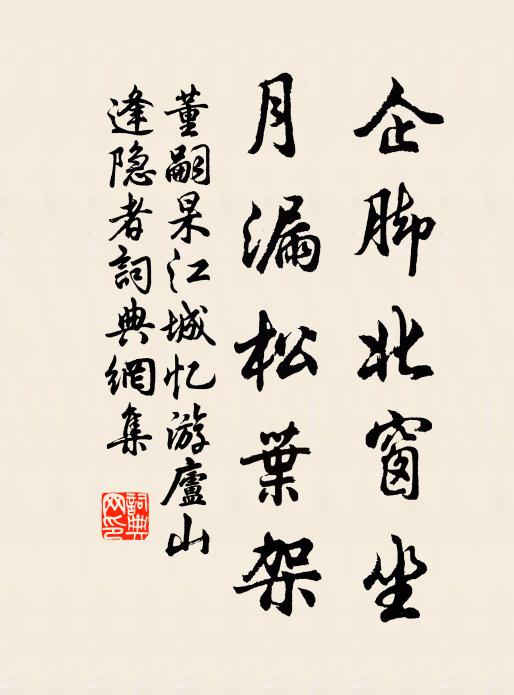 企脚北窗坐
月漏松葉架
董嗣杲江城忆游廬山
逢隐者詞典網集
詞典网印